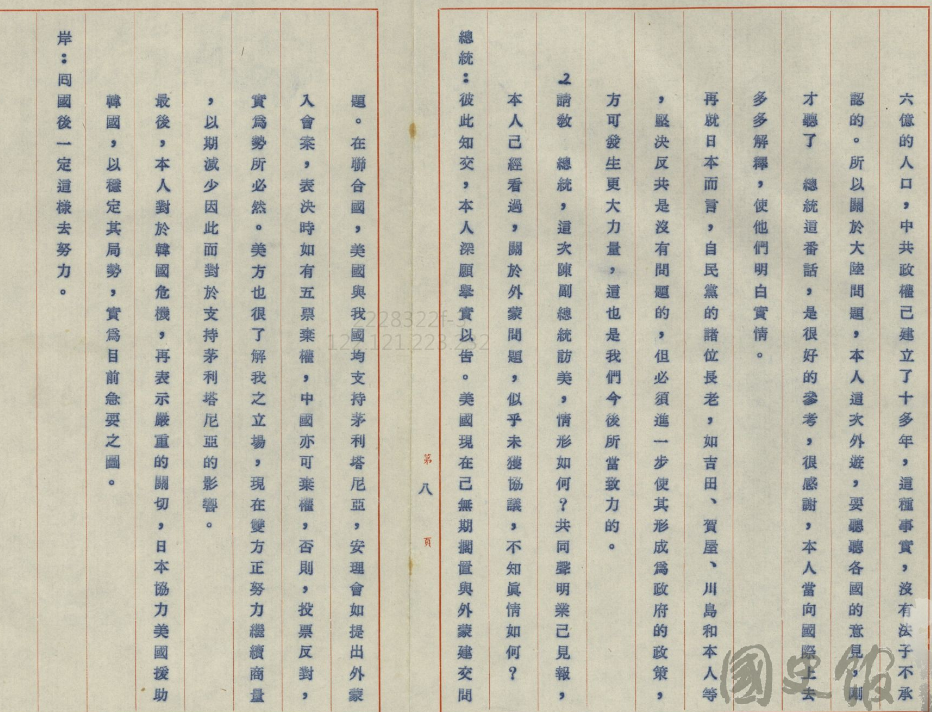 六億的人口，中共政權已建立了十多年，這種事實，沒有法子不承
認的。所以關於大陸問題，本人這次外遊，要聽聽各國的意見，剛
才聽了　總統這番話，是很好的參考，很感謝，本人當向國際上去
多多解釋，使他們明白實情。
再就日本而言，自民黨的諸位長老，如吉田、賀屋、川島和本人等
，堅決反共是沒有問題的，但必須進一步使其形成為政府的政策，
方可發生更大力量，這也是我們今後所當致力的。
2.請教　總統，這次陳副總統訪美，情形如何？共同聲明業已見報，
本人已經看過，關於外蒙問題，似乎未獲協議，不知眞情如何？
總統：彼此知交，本人深願舉實以告。美國現在已無期擱置與外蒙建交問
第八頁
題。在聯合國，美國與我國均支持茅利塔尼亞，安理會如提出外蒙
入會案，表決時如有五票棄權，中國亦可棄權，否則，投票反對，
實為勢所必然。美方也很了解我之立場，現在雙方正努力繼續商量
，以期減少因此而對於支持茅利塔尼亞的影響。
最後，本人對於韓國危機，再表示嚴重的關切，日本協力美國援助
韓國，以穩定其局勢，實為目前急要之圖。
岸：囘國後一定這樣去努力。
228322f-3
122.121.223.232
國史館